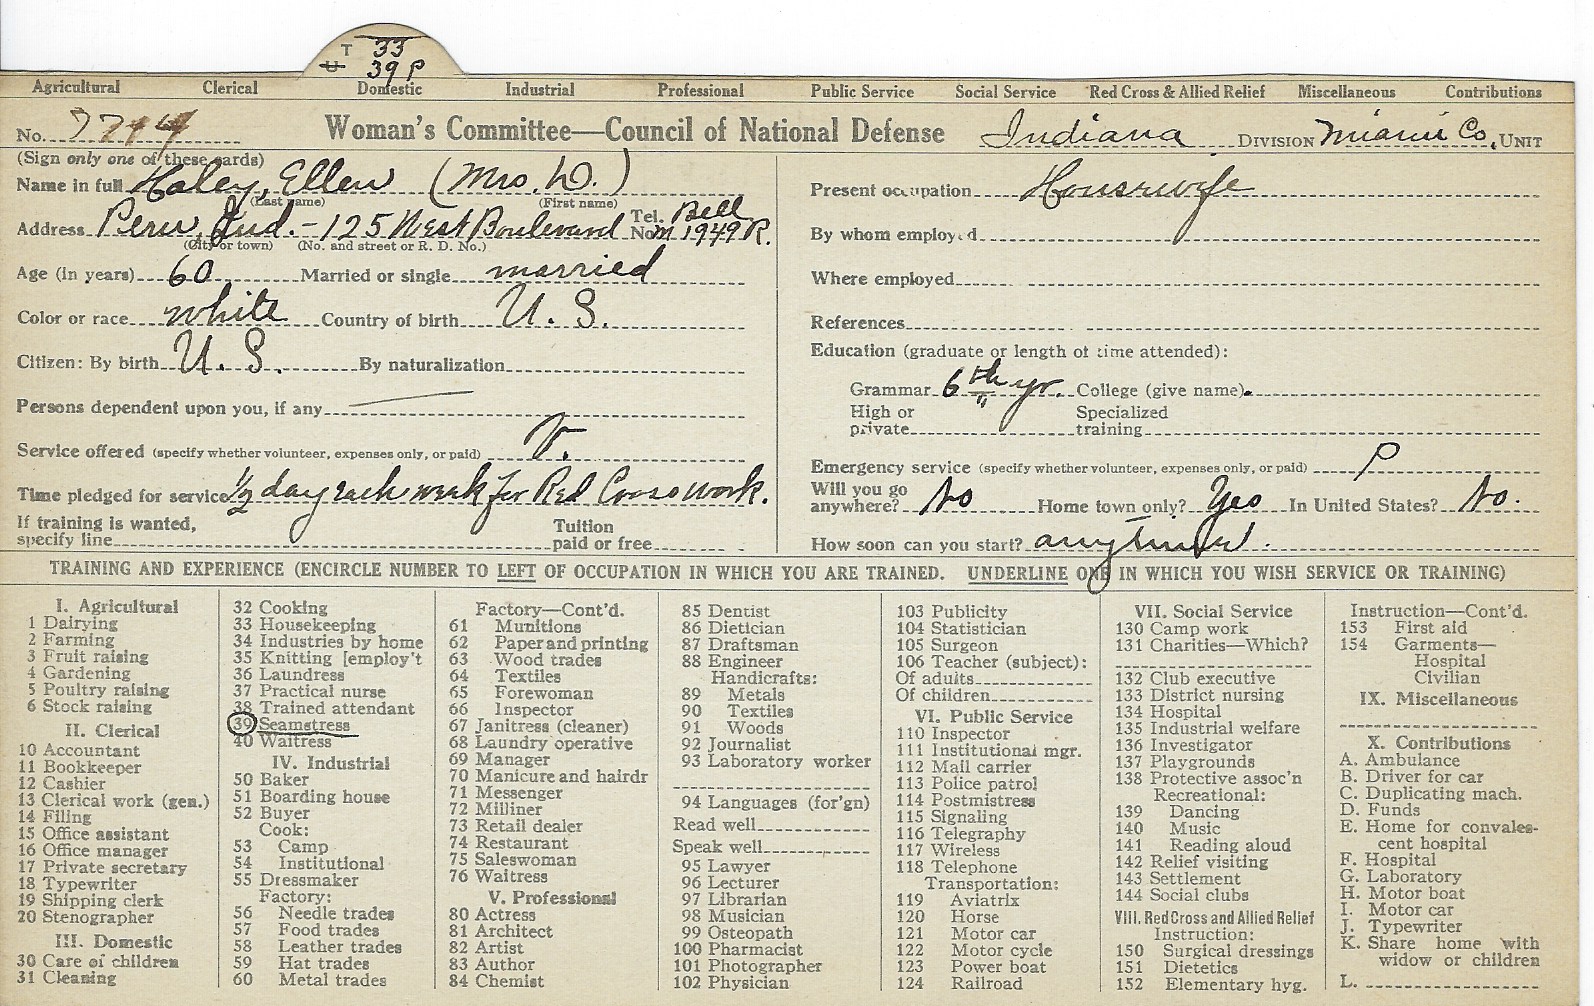 T 33
U 39 P
Agricultural Clerical Domestic Industrial Professional Public Service Social Service Red Cross & Allied Relief Miscellaneous Contributions
No. 7714 Woman's Committee—Council of National Defense Indiana DIVISION Miami Co. UNIT
(Sign only one of these cards)
Name in full Haley, Ellen (Mrs. D.)
(Last name) (First name)
Address Peru, Ind. - 125 West Boulevard Tel. No. Bell M 1949 R.
(City or town) (No. and street or R. D. No.)
Age (in years) 60 Married or single married
Color or race white Country of birth U. S.
Citizen: By birth U. S. By naturalization
Persons dependent upon you, if any —
Service offered (specify whether volunteer, expenses only, or paid) V.
Time pledged for service 1/2 day each week for Red Cross work.
If training is wanted, specify line Tuition paid or free
Present occupation Housewife
By whom employed
Where employed
References
Education (graduate or length of time attended):
Grammar 6th yr. College (give name)
High or private Specialized training
Emergency service (specify whether volunteer, expenses only, or paid) P
Will you go anywhere? No Home town only? Yes In United States? No.
How soon can you start? anytime.
TRAINING AND EXPERIENCE (ENCIRCLE NUMBER TO LEFT OF OCCUPATION IN WHICH YOU ARE TRAINED. UNDERLINE ONE IN WHICH YOU WISH SERVICE OR TRAINING)
I. Agricultural
1 Dairying
2 Farming
3 Fruit raising
4 Gardening
5 Poultry raising
6 Stock raising
II. Clerical
10 Accountant
11 Bookkeeper
12 Cashier
13 Clerical work (gen.)
14 Filing
15 Office assistant
16 Office manager
17 Private secretary
18 Typewriter
19 Shipping clerk
20 Stenographer
III. Domestic
30 Care of children
31 Cleaning
32 Cooking
33 Housekeeping
34 Industries by home
35 Knitting [employ't
36 Laundress
37 Practical nurse
38 Trained attendant
39 Seamstress
40 Waitress
IV. Industrial
50 Baker
51 Boarding house
52 Buyer
Cook:
53 Camp
54 Institutional
55 Dressmaker
Factory:
56 Needle trades
57 Food trades
58 Leather trades
59 Hat trades
60 Metal trades
Factory—Cont'd.
61 Munitions
62 Paper and printing
63 Wood trades
64 Textiles
65 Forewoman
66 Inspector
67 Janitress (cleaner)
68 Laundry operative
69 Manager
70 Manicure and hairdr
71 Messenger
72 Milliner
73 Retail dealer
74 Restaurant
75 Saleswoman
76 Waitress
V. Professional
80 Actress
81 Architect
82 Artist
83 Author
84 Chemist
85 Dentist
86 Dietician
87 Draftsman
88 Engineer
Handicrafts:
89 Metals
90 Textiles
91 Woods
92 Journalist
93 Laboratory worker
94 Languages (for'gn)
Read well
Speak well
95 Lawyer
96 Lecturer
97 Librarian
98 Musician
99 Osteopath
100 Pharmacist
101 Photographer
102 Physician
103 Publicity
104 Statistician
105 Surgeon
106 Teacher (subject):
Of adults
Of children
VI. Public Service
110 Inspector
111 Institutional mgr.
112 Mail carrier
113 Police patrol
114 Postmistress
115 Signaling
116 Telegraphy
117 Wireless
118 Telephone
Transportation:
119 Aviatrix
120 Horse
121 Motor car
122 Motor cycle
123 Power boat
124 Railroad
VII. Social Service
130 Camp work
131 Charities—Which?
132 Club executive
133 District nursing
134 Hospital
135 Industrial welfare
136 Investigator
137 Playgrounds
138 Protective assoc'n
Recreational:
139 Dancing
140 Music
141 Reading aloud
142 Relief visiting
143 Settlement
144 Social clubs
VIII. Red Cross and Allied Relief
Instruction:
150 Surgical dressings
151 Dietetics
152 Elementary hyg.
Instruction—Cont'd.
153 First aid
154 Garments—
Hospital
Civilian
IX. Miscellaneous
X. Contributions
A. Ambulance
B. Driver for car
C. Duplicating mach.
D. Funds
E. Home for convales-
cent hospital
F. Hospital
G. Laboratory
H. Motor boat
I. Motor car
J. Typewriter
K. Share home with
widow or children
L.